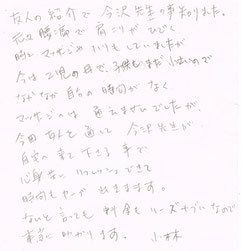 友人の紹介で今沢先生の事知りました。
元々腰痛で肩こりがひどく
時々マッサージや
今は2児の母で、子供もまだ小さいので
なかなか自分の時間がなく、
マッサージには通えませんでしたが、
今回 を通して今沢先生が
自宅へ来て下さる事で
心身共にリフレッシュできて
時間も 出来ます。
なんと言っても料金もリーズナブルなので
本当に助かります。 小林